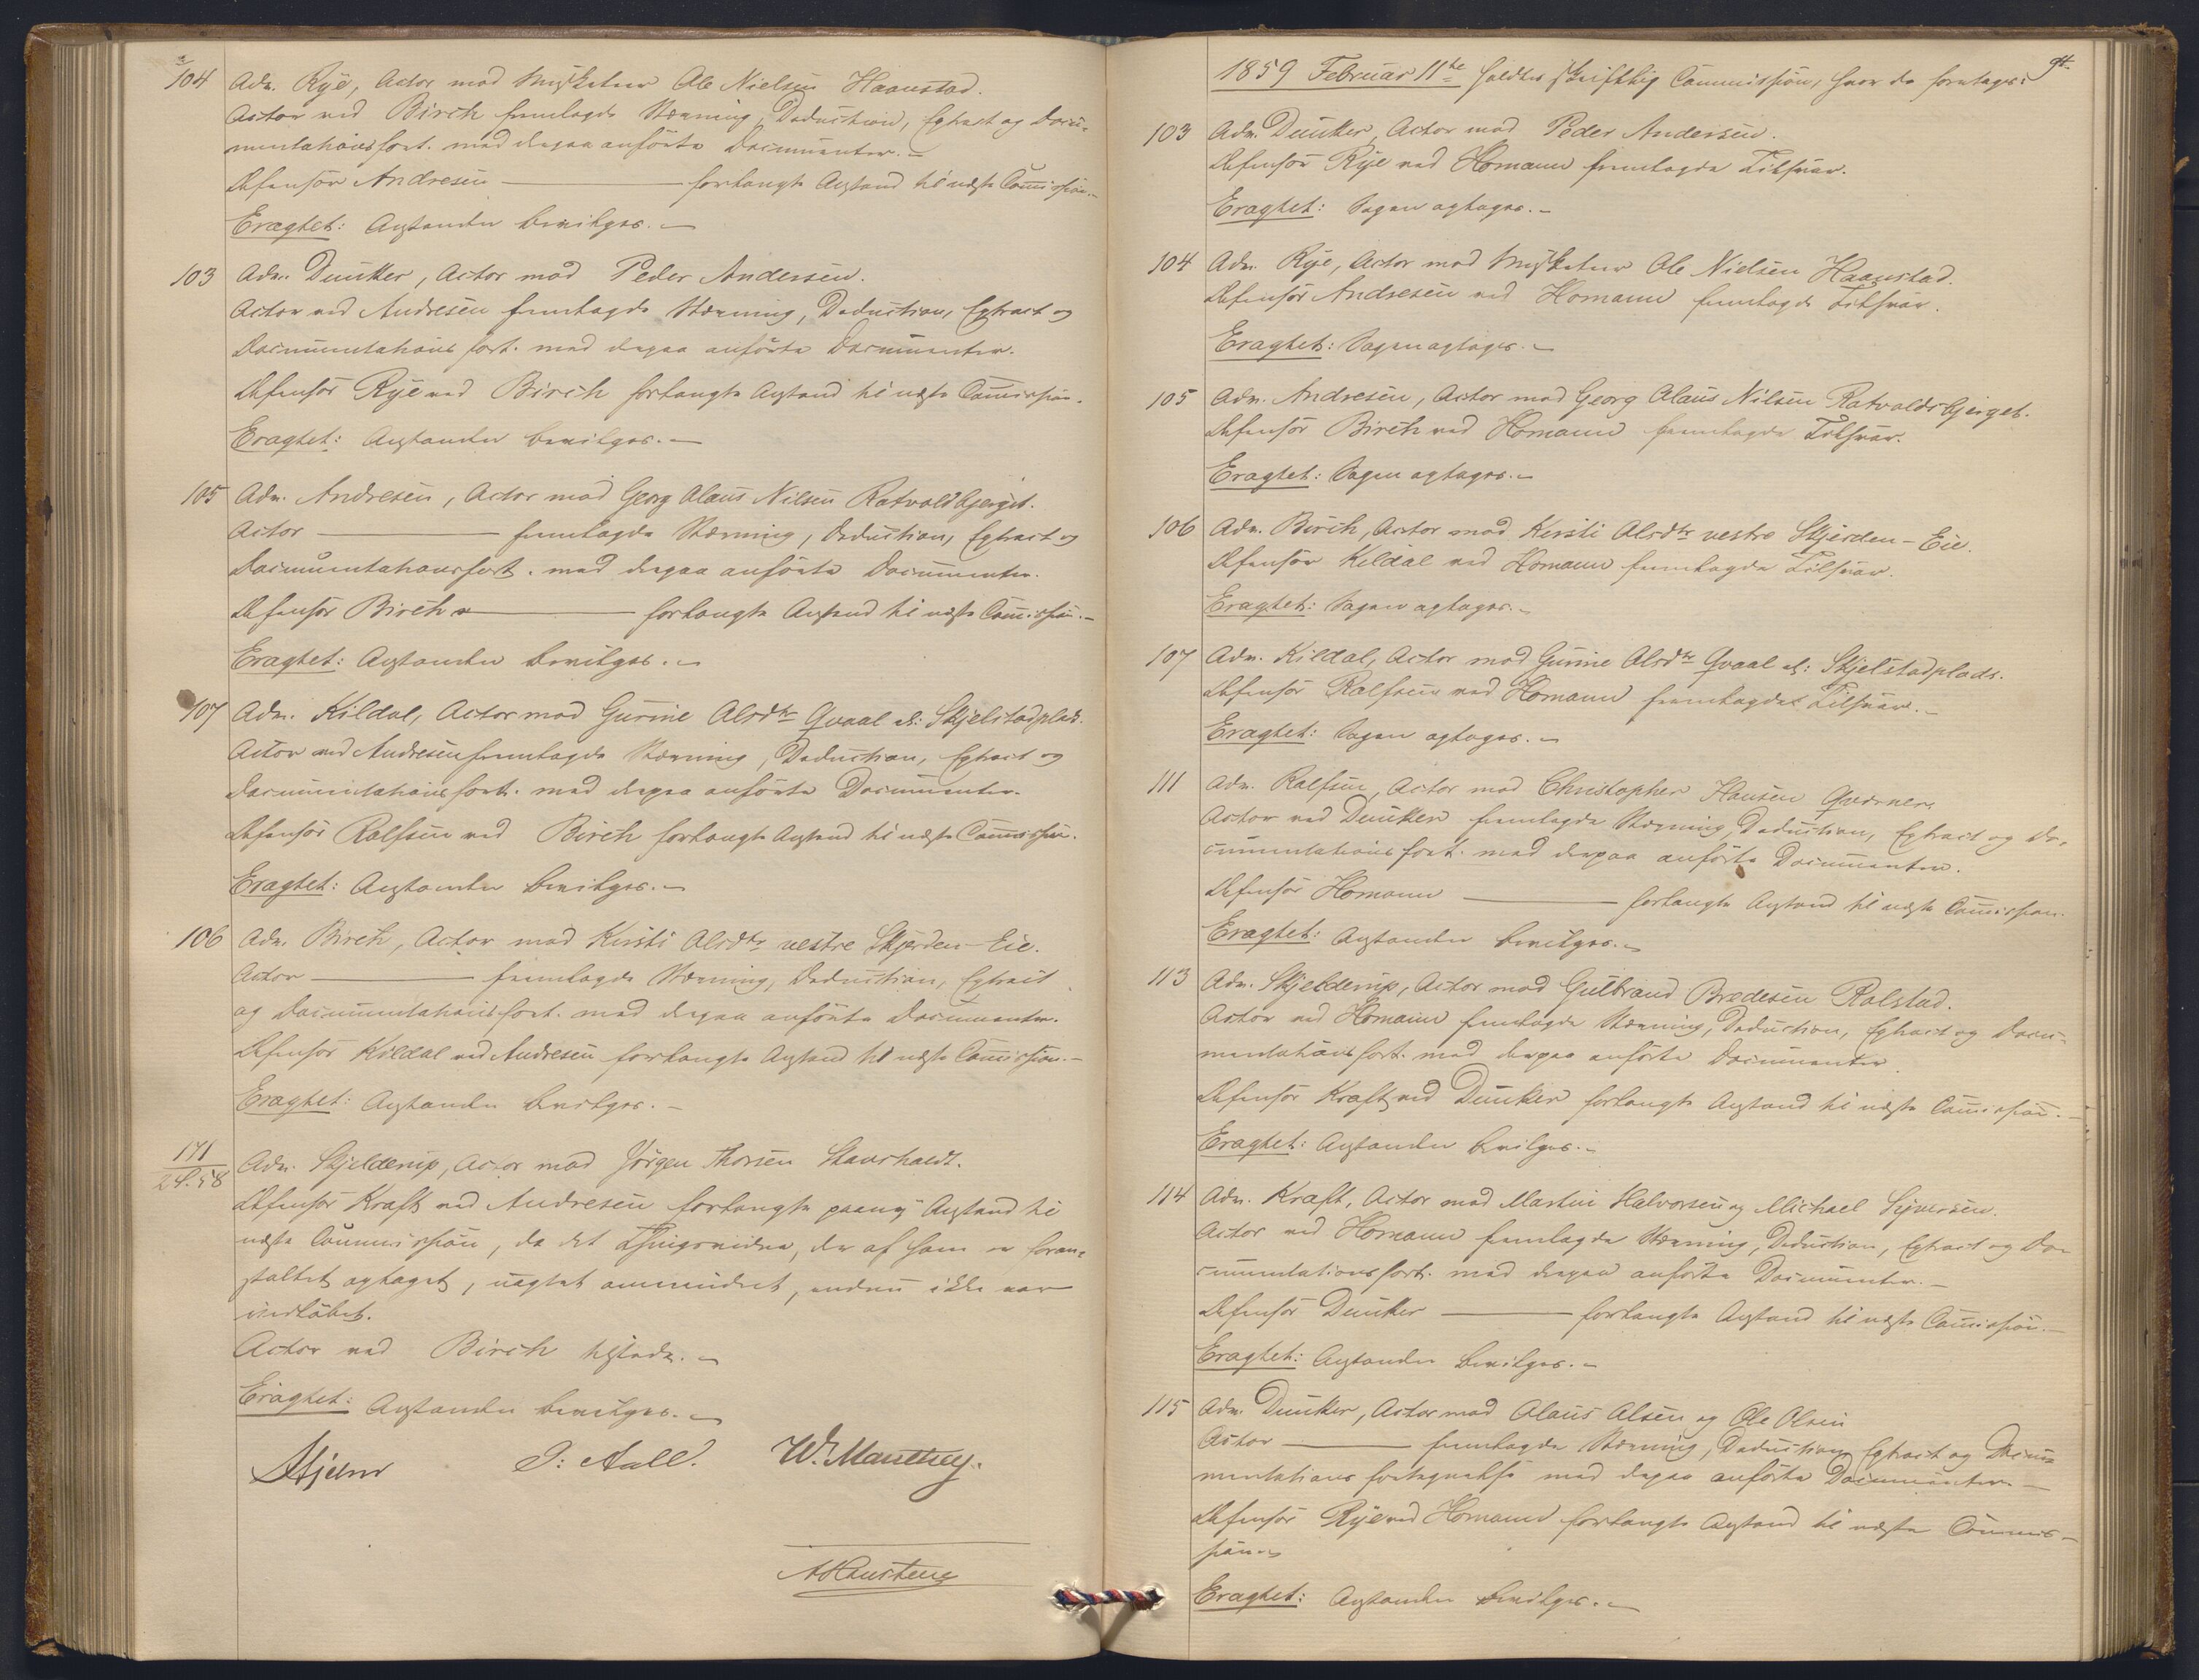 104 Adv. Rye, Actor mod Musketeer Ole Nielsen Haanstad.
Actor ved Birch fremlagde Stævning, Deduction, Extract og Docu-
mentationsfort. med derpaa anførte Documenter.-
Defensor Andresen forlangte Anstand til næste Commission.-
Eragtet: Anstanden bevilges.-
103 Adv. Dunker, Actor mod Peder Andersen.
Actor ved Andresen fremlagde Stævning, Deduction, Extract og
Documentations fort. med derpaa anførte Documenter.
Defensor Rye ved Birch forlangte Anstand til næste Commission.
Eragtet: Anstanden bevilges.-
105 Adv. Andresen, Actor mod Georg Olaus Nilsen Ratvoldbjerget.
Actor fremlagde Stævning, Deduction, Extract og
Documentationsfort. med derpaa anførte Documenter.
Defensor Birch forlangte Anstand til næste Commission.-
Eragtet: Anstanden bevilges.-
107 Adv. Kildal, Actor mod Gurine Olsdtr Qvaal el: Skjelstadplads.
Actor ved Andresen fremlagde Stævning, Deduction, Extract og
Documentationsfort. med derpaa anførte Documenter.
Defensor Rolfsen ved Birch forlangte Anstand til næste Commission.
Eragtet: Anstanden bevilges.-
106 Adv. Birch, Actor mod Kirsti Olsdtr vestre Skjerden-Eie.
Actor fremlagde Stævning, Deduction, Extract
og Documentationsfort. med derpaa anførte Documenter.
Defensor Kildal ved Andresen forlangte Anstand til næste Commission.-
Eragtet: Anstanden bevilges.-
171 Adv. Skjelderup, Actor mod Jörgen Thorsen
Defensor Kraft ved Andresen forlangte paany Anstand til
næste Commission, da det Thingsvidne, der af ham er foran-
staltet optaget, uagtet anmindet, endnu ikke var
indløbet.
Actor ved Birch tilstede.-
Eragtet: Anstanden bevilges.-
Hjelm J: Aall. W. Manthey.
AHansteen
1859 Februar 11te holdtes skriftlig Commission, hvor da foretoges:
103 Adv. Dunker, Actor mod Peder Andersen.
Defensor Rye ved Homann fremlagde Tilsvar.
Eragtet: Sagen optages.-
104 Adv. Rye, Actor mod Musketeer Ole Nielsen Haanstad.
Defensor Andresen ved Homann fremlagde Tilsvar.
Eragtet: Sagen optages.-
105 Adv. Andresen, Actor mod Georg Olaus Nilsen Ratvoldsbjerget.
Defensor Birch ved Homann fremlagde Tilsvar.
Eragtet: Sagen optages.-
106 Adv. Birch, Actor mod Kirsti Olsdtr vestre Skjerden-Eie.
Defensor Kildal ved Homann fremlagde Tilsvar.
Eragtet: Sagen optages.-
107 Adv. Kildal, Actor mod Gurine Olsdtr Qvaal el: Skjelstadplads.
Defensor Rolfsen ved Homann fremlagde Tilsvar.-
Eragtet: Sagen optages.-
111 Adv. Rolfsen, Actor mod Christopher Hansen Qværner.
Actor ved Dunker fremlagde Stævning, Deduction, Extract og Do-
cumentationsfort. med derpaa anførte Documenter.
Defensor Homann forlangte Anstand til næste Commission.
Eragtet: Anstanden bevilges.-
113 Adv. Skjelderup, Actor mod Gulbrand Bredesen Rolstad.
Actor ved Homann fremlagde Stævning, Deduction, Extract og Docu-
mentationsfort. med derpaa anførte Documenter.
Defensor Kraft ved Dunker forlangte Anstand til næste Commission.-
Eragtet: Anstanden bevilges.-
114 Adv. Kraft, Actor mod Martin Halvorsen og Michael Syversen.
Actor ved Homann fremlagde Stævning, Deduction, Extract og Do-
cumentationsfort. med derpaa anførte Documenter.-
Defensor Dunker forlangte Anstand til næste Commission.-
Eragtet: Anstanden bevilges.-
115 Adv. Dunker, Actor mod Olaus Olsen og Ole Olsen
Actor fremlagde Stævning, Deduction, Extract og Docu-
mentations fortegnelse med derpaa anførte Documenter.-
Defensor Rye ved Homann forlangte Anstand til næste Commis-
sion.-
Eragtet: Anstanden bevilges.-